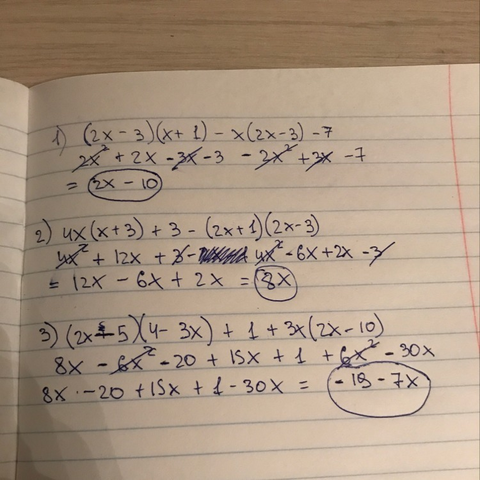 1) (2x - 3)(x + 1) - x(2x - 3) - 7
2x² + 2x - 3x - 3 - 2x² + 3x - 7
= 2x - 10
2) 4x(x + 3) + 3 - (2x + 1)(2x - 3)
4x² + 12x + 3 - 4x² - 6x + 2x - 3
= 12x - 6x + 2x = 8x
3) (2x - 5)(4 - 3x) + 1 + 3x(2x - 10)
8x - 6x² - 20 + 15x + 1 + 6x² - 30x
8x - 20 + 15x + 1 - 30x = -19 - 7x